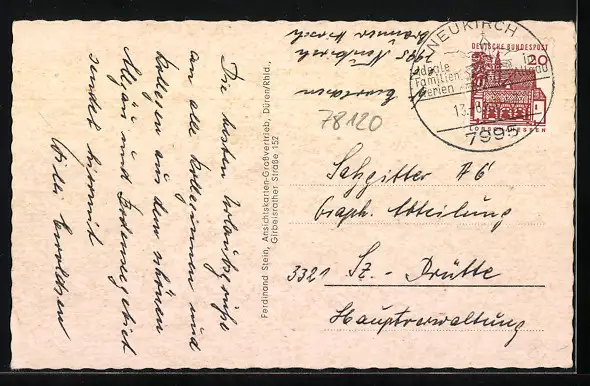 Die besten Urlaubsgrüße
an alle Kolleginnen und
Kollegen aus dem schönen
Allgäu und Bodenseegebiet
sendet hiermit
Willi
Ferdinand Stein, Ansichtskarten-Großvertrieb, Düren/Rhld.,
Girbelsrather Straße 152
7995 Neukirch
78120
NEUKIRCH
ideale
Familien
ferien
im
13.
7995
DEUTSCHE BUNDESPOST
20
LORSCH/HESSEN
Salzgitter AG
Graph. Abteilung
3321 Sz.-Drütte
Hauptverwaltung